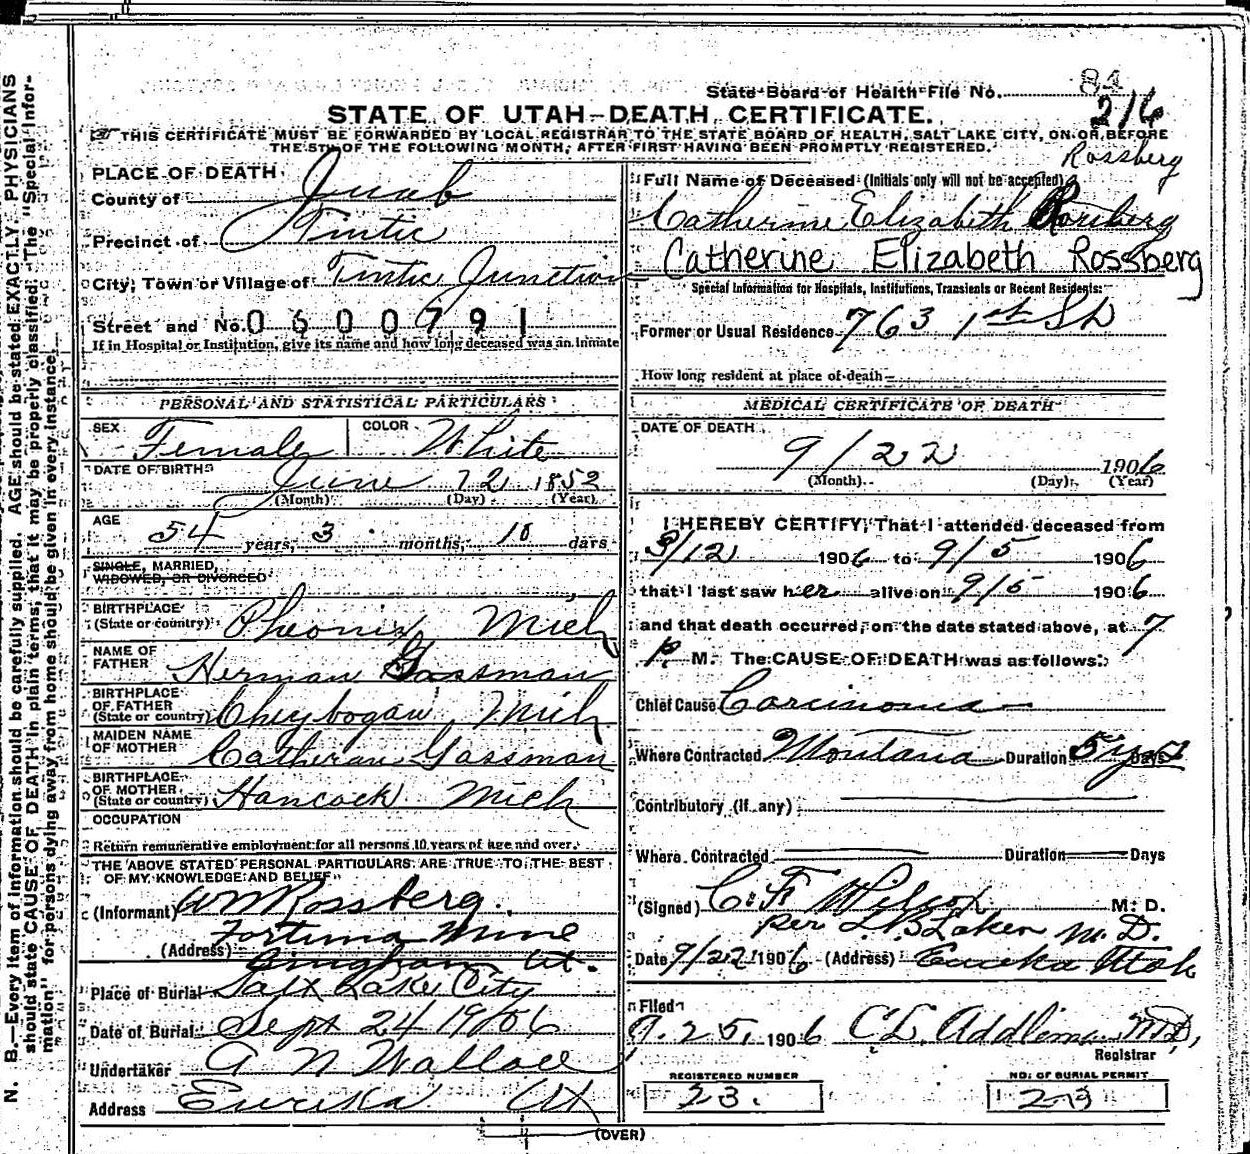 State Board of Health File No. 84
216
STATE OF UTAH—DEATH CERTIFICATE.
THIS CERTIFICATE MUST BE FORWARDED BY LOCAL REGISTRAR TO THE STATE BOARD OF HEALTH, SALT LAKE CITY, ON OR BEFORE
THE 5TH OF THE FOLLOWING MONTH, AFTER FIRST HAVING BEEN PROMPTLY REGISTERED.
Rossberg
PLACE OF DEATH
County of Juab
Precinct of Tintic
City, Town or Village of Tintic Junction
Street and No. 0600791
If in Hospital or Institution, give its name and how long deceased was an Inmate
PERSONAL AND STATISTICAL PARTICULARS
SEX Female COLOR White
DATE OF BIRTH June 12 1852
(Month) (Day) (Year)
AGE 54 years, 3 months, 10 days
SINGLE, MARRIED,
WIDOWED, OR DIVORCED
BIRTHPLACE
(State or country) Pheonix Mich
NAME OF
FATHER Herman Gassman
BIRTHPLACE
OF FATHER
(State or country) Cheybogan, Mich
MAIDEN NAME
OF MOTHER Catheran Gassman
BIRTHPLACE
OF MOTHER
(State or country) Hancock Mich
OCCUPATION
Return remunerative employment for all persons 10 years of age and over.
THE ABOVE STATED PERSONAL PARTICULARS ARE TRUE TO THE BEST
OF MY KNOWLEDGE AND BELIEF
(Informant) Wm Rossberg.
(Address) Fortuna Mine
Bingham Ut.
Place of Burial Salt Lake City
Date of Burial Sept 24 1906
Undertaker A N Wallace
Address Eureka Ut
Full Name of Deceased (Initials only will not be accepted)
Catherine Elizabeth Rossberg
Catherine Elizabeth Rossberg
Special Information for Hospitals, Institutions, Transients or Recent Residents:
Former or Usual Residence 763 1st St
How long resident at place of death
MEDICAL CERTIFICATE OF DEATH
DATE OF DEATH
9/22 1906
(Month) (Day) (Year)
I HEREBY CERTIFY, That I attended deceased from
3/12 1906 to 9/5 1906
that I last saw her alive on 9/5 1906
and that death occurred, on the date stated above, at 7
P. M. The CAUSE OF DEATH was as follows:
Chief Cause Carcinoma
Where Contracted Montana Duration 5 yrs Days
Contributory (if any)
Where Contracted Duration Days
(Signed) C. F. Wilcox M. D.
per L B Laken M. D.
Date 9/22 1906 (Address) Eureka Utah
Filed
9. 25, 1906 C L. Addleman M D,
Registrar
REGISTERED NUMBER
23.
NO. OF BURIAL PERMIT
23
(OVER)
N. B.—Every item of information should be carefully supplied. AGE should be stated EXACTLY. PHYSICIANS
should state CAUSE OF DEATH in plain terms, that it may be properly classified. The "Special Infor-
mation" for persons dying away from home should be given in every instance.